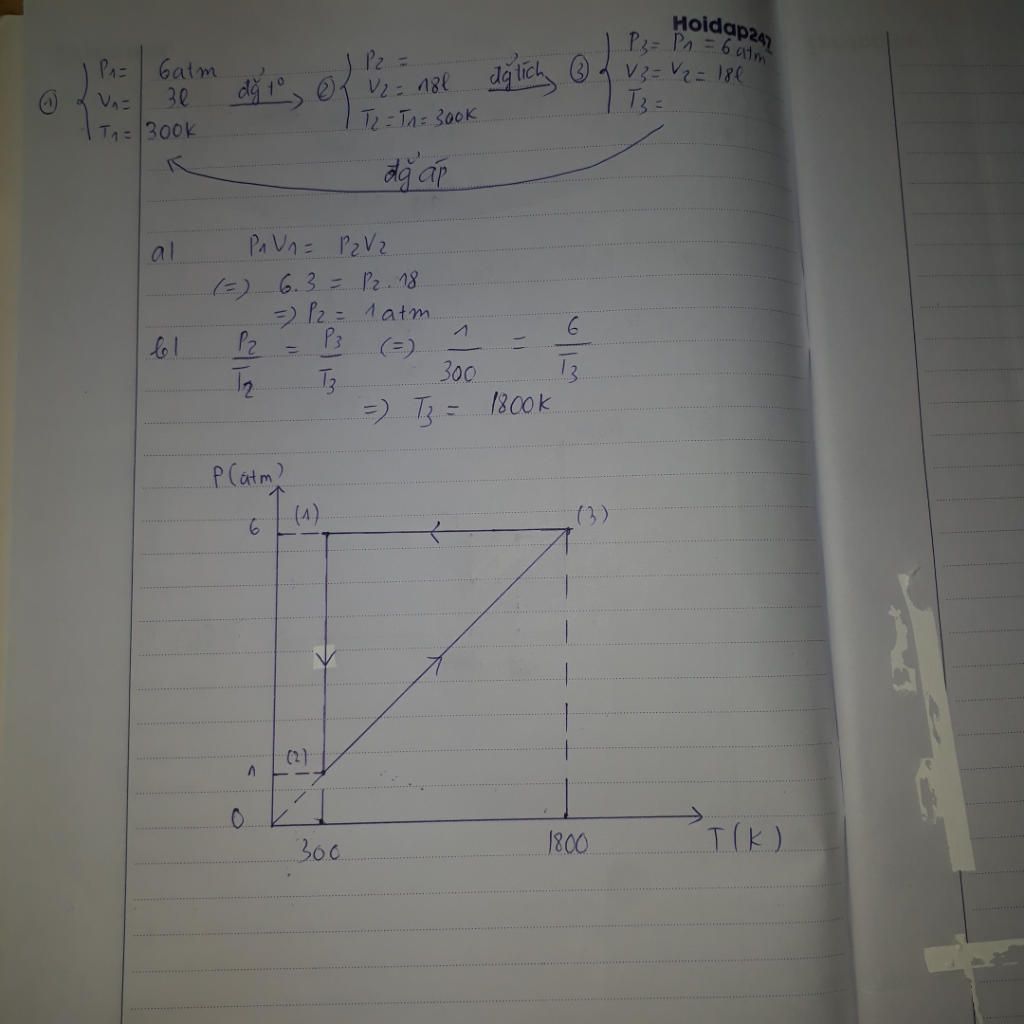 Hoidap247
① { P1 = 6atm
V1 = 3l
T1 = 300K
đẳ t°
② { P2 =
V2 = 18l
T2 = T1 = 300K
đẳ tích
③ { P3 = P1 = 6atm
V3 = V2 = 18l
T3 =
đẳ áp
a) P1V1 = P2V2
(=) 6.3 = P2.18
=) P2 = 1atm
b) P2/T2 = P3/T3 (=) 1/300 = 6/T3
=) T3 = 1800K
P(atm)
6 (1) (3)
1 (2)
0
300 1800 T(K)